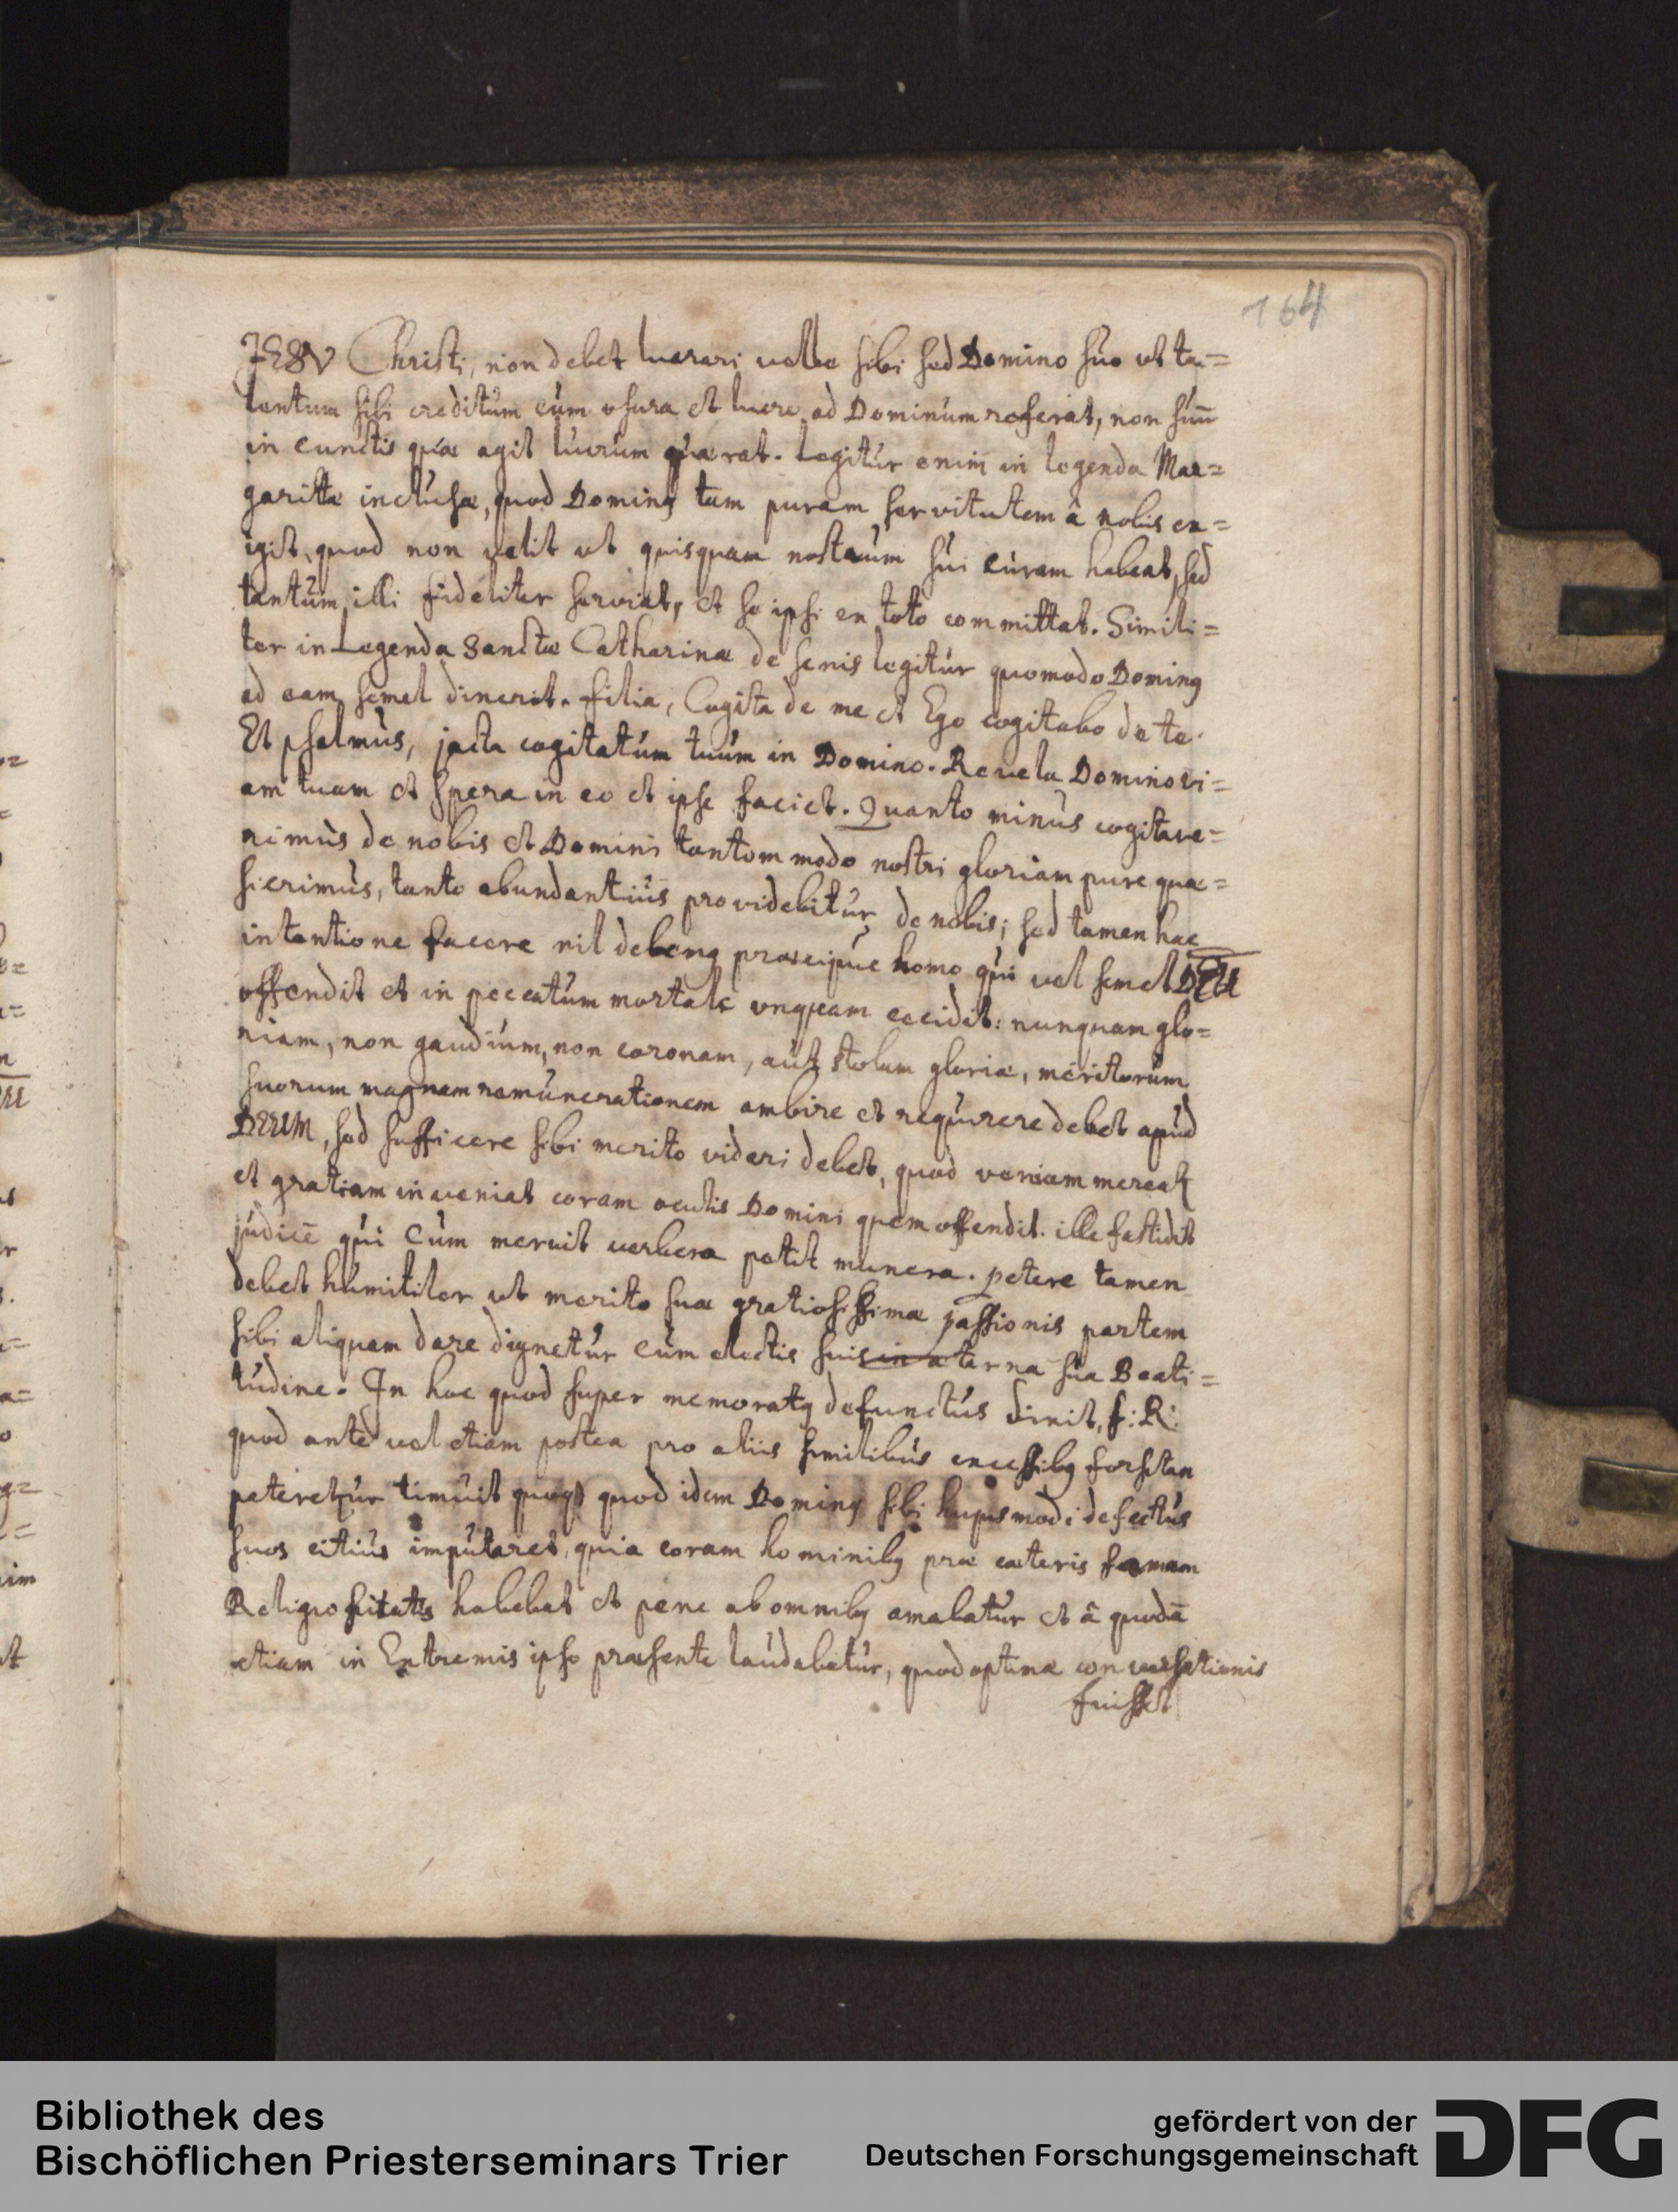 164
JESV Christi, non debet lucrari velle sibi sed Domino suo vt ta=
lentum sibi creditum cum vsura et lucro ad Dominum referat, non suū
in cunctis quæ agit lucrum quærat. Legitur enim in legenda Mar=
garittæ inclusæ, quod Dominꝰ tam puram servitutem â nobis ex=
igit quod non velit vt quisquam nostrum sui curam habeat, sed
tantum illi fideliter serviat, et se ipsi ex toto committat. Simili=
ter in Legenda Sanctæ Catharinæ de senis legitur quomodo Dominꝰ
ad eam semel dixerit. filia, Cogita de me et Ego cogitabo de te.
Et psalmus, jacta cogitatum tuum in Domino. Revela Domino vi=
am tuam et spera in eo et ipse faciet. Quanto minus cogitave=
rimus de nobis et Domini tantommodo nostri gloriam pure quæ=
sierimus, tanto abundantius providebitur de nobis; sed tamen hac
intentione facere nil debemꝰ præcipue homo qui vel semel DEU
offendit et in peccatum mortale vnquam cecidit: nunquam glo=
riam, non gaudium, non coronam, aut stolam gloriæ, meritorum
suorum magnam remunerationem ambire et requirere debet apud
DEUM, sed sufficere sibi merito videri debet, quod veniam mereaꝉ
et gratiam inveniat coram oculis Domini quem offendit. ille fastidit
judicē qui Cum meruit verbera petit munera. petere tamen
debet humiliter vt merito suæ gratiosissimæ passionis partem
sibi aliquam dare dignetur cum electis suis in æterna sua Beati=
tudine. In hac quod super memoratꝰ defunctus finit, f: R:
quod ante vel etiam postea pro aliis similibus excessibꝰ forsitan
peteretur timuit quoqꝫ quod idem Dominꝰ sibi hujusmodi defectus
suos citius imputaret, quia coram hominibꝰ præ cæteris famam
Religiositatis habebat et pene ab omnibꝰ amabatur et â quodā
etiam in Extremis ipso præsente laudabatur, quod optimæ conversationis
fuisset
Bibliothek des
Bischöflichen Priesterseminars Trier
gefördert von der
Deutschen Forschungsgemeinschaft
DFG